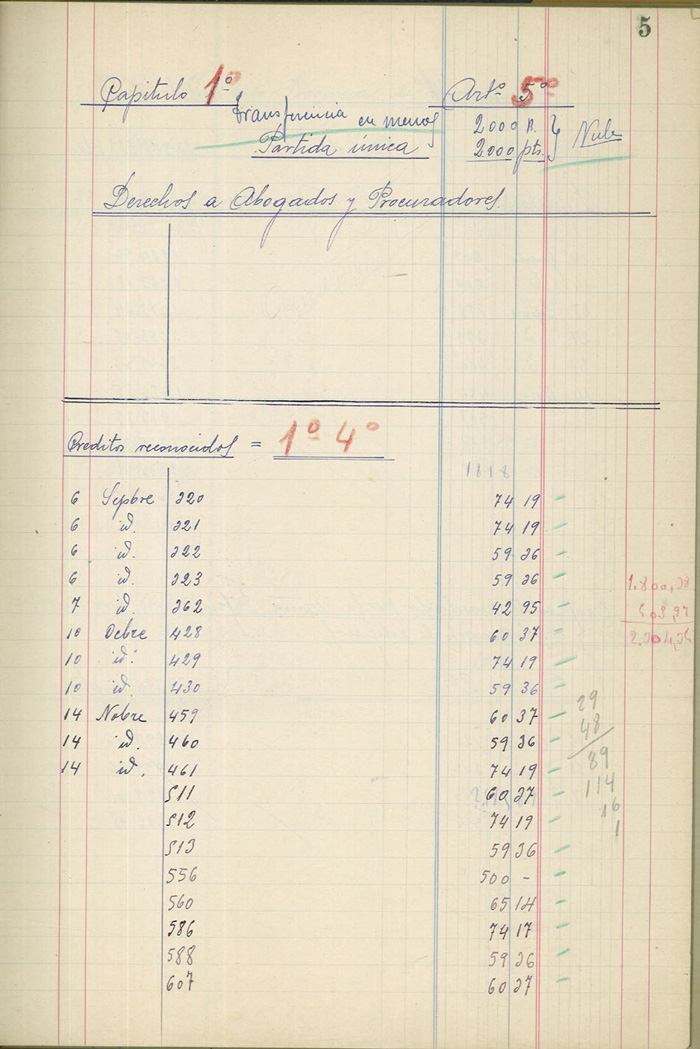 5
Capitulo 1º Artº 5º
transferencia en menos
2000 p.
Partida única 2000 pts. Nulo
Derechos a Abogados y Procuradores.
Creditos reconocidos = 1º 4º
1818
6 Sepbre 220 74 19
6 id. 221 74 19
6 id. 222 59 36
6 id. 223 59 36
7 id. 262 42 95
10 Ocbre 428 60 37
10 id. 429 74 19
10 id. 430 59 36
14 Nobre 459 60 37
14 id. 460 59 36
14 id. 461 74 19
511 60 37
512 74 19
513 59 36
556 500 -
560 65 14
586 74 17
588 59 36
607 60 37
29
48
89
114
16
1